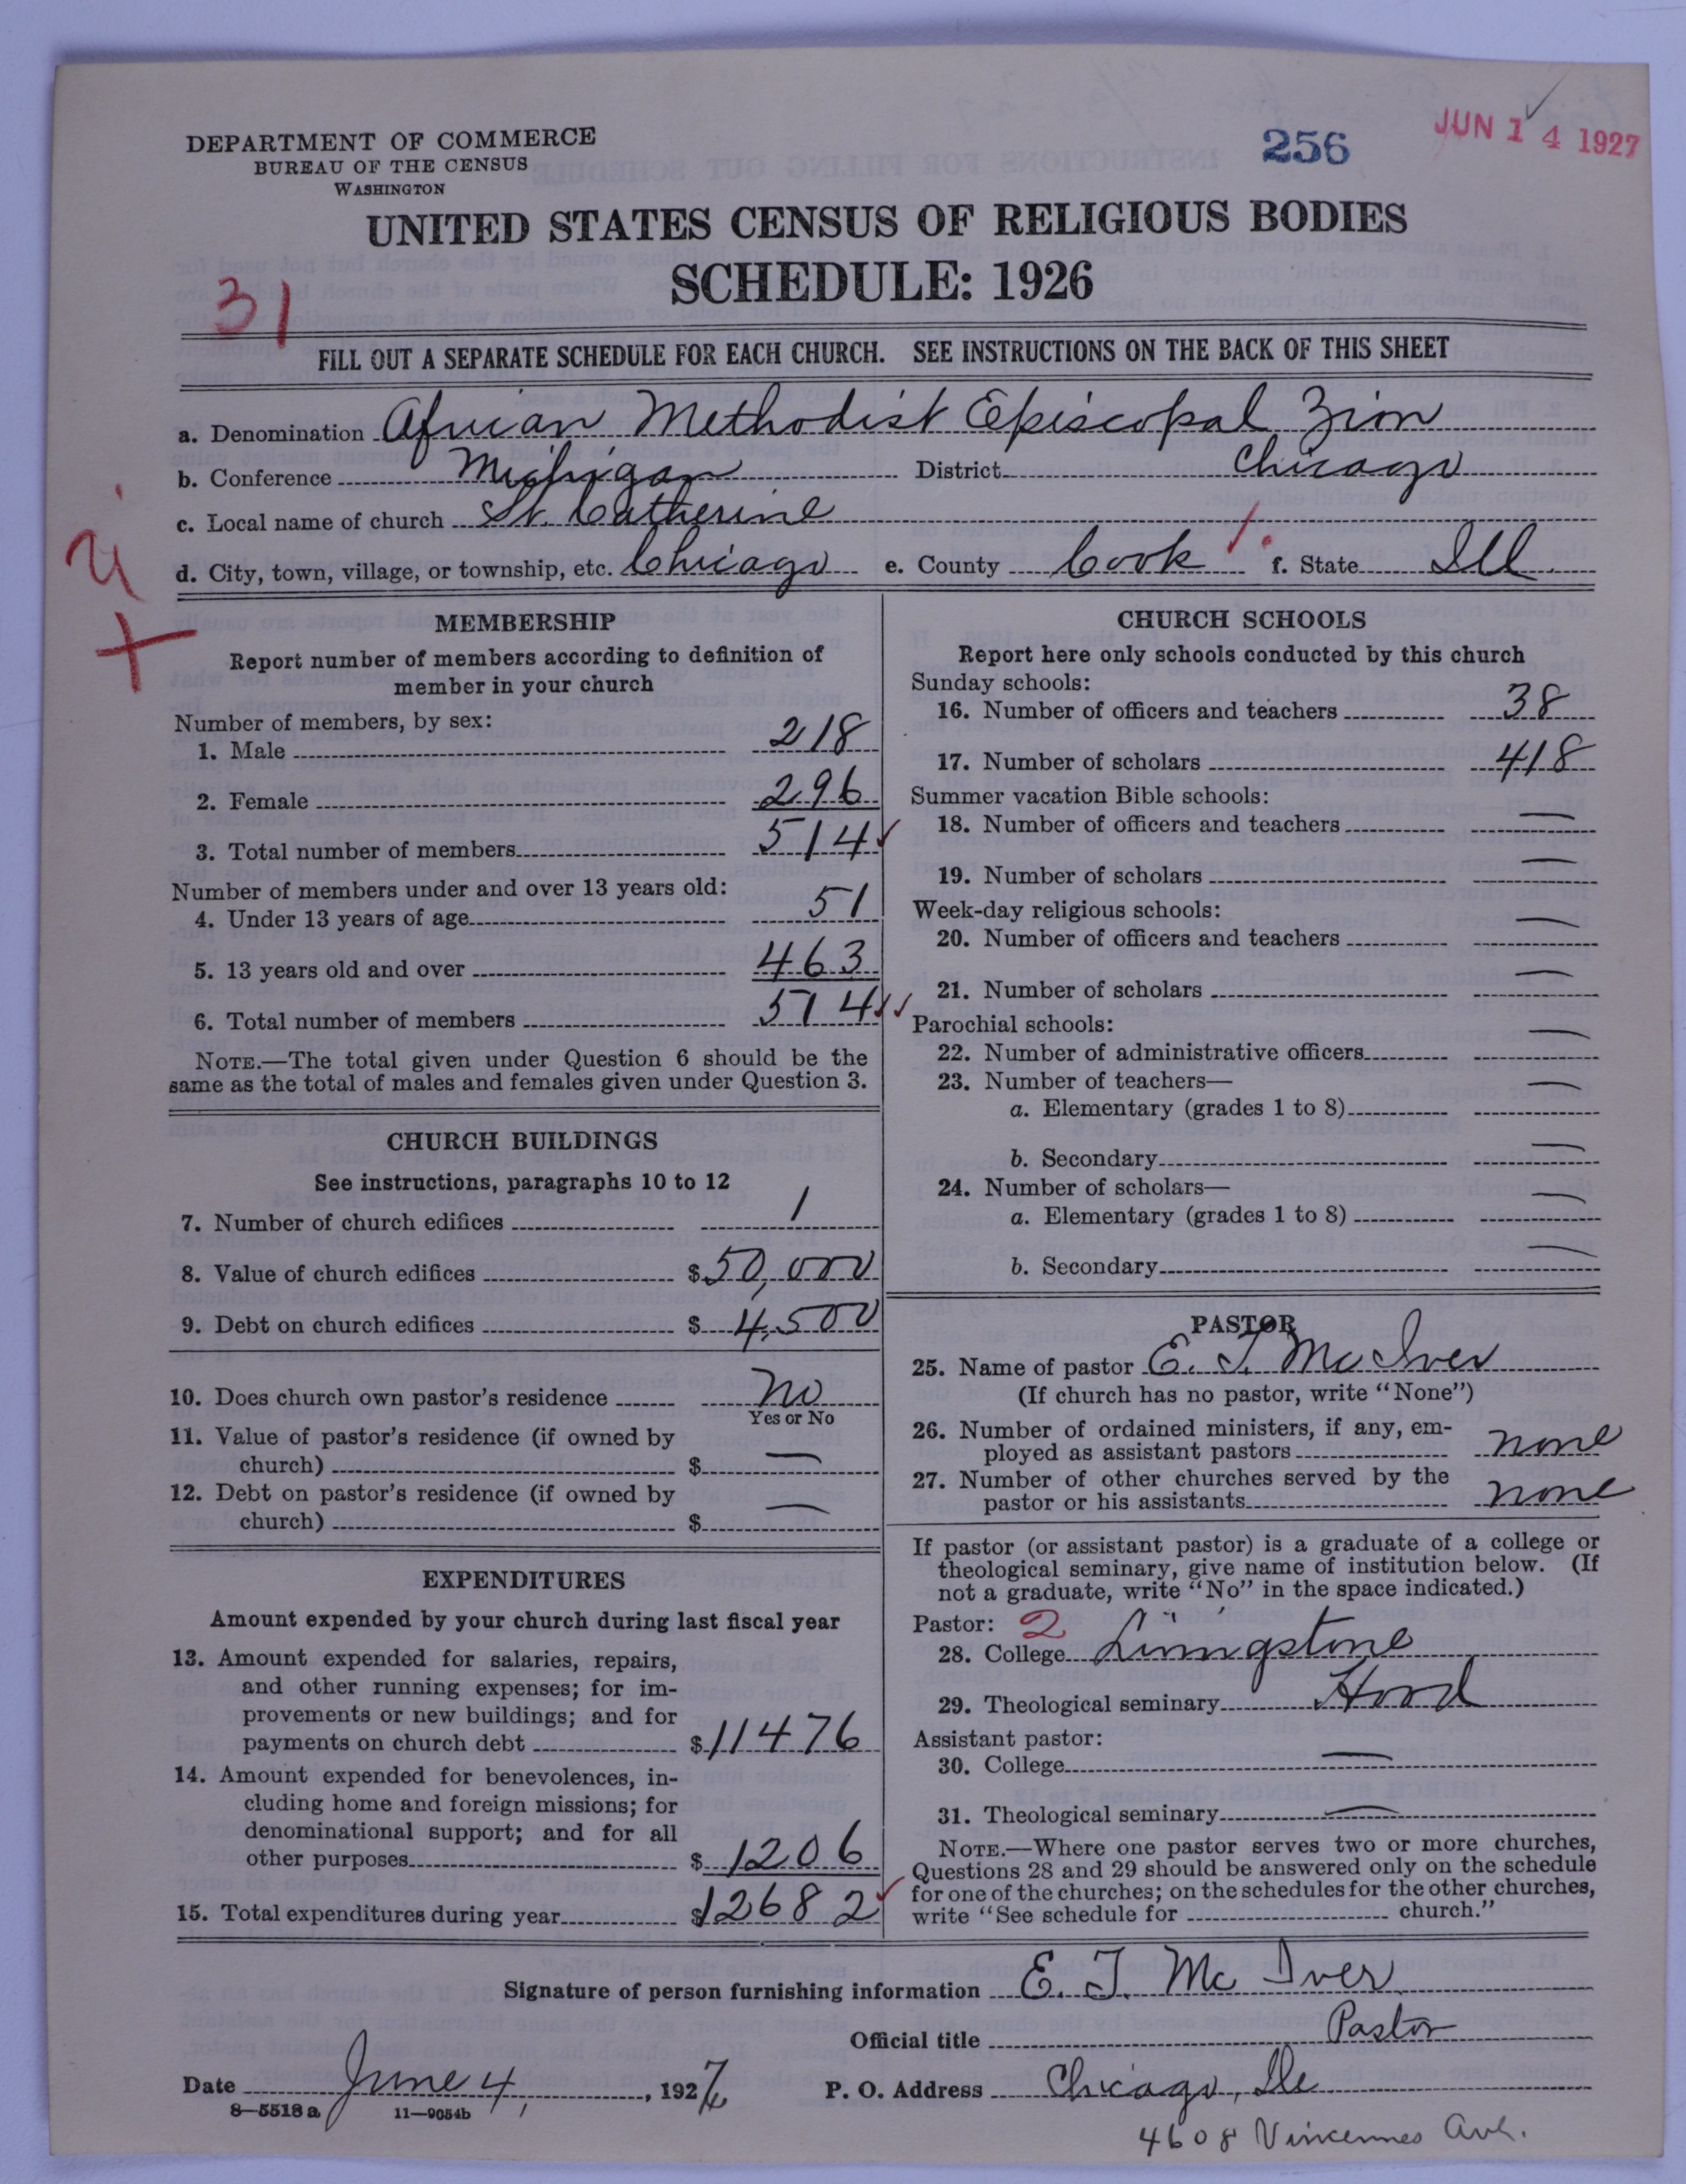 DEPARTMENT OF COMMERCE
BUREAU OF THE CENSUS
WASHINGTON
256
JUN 14 1927
UNITED STATES CENSUS OF RELIGIOUS BODIES
SCHEDULE: 1926
31
FILL OUT A SEPARATE SCHEDULE FOR EACH CHURCH. SEE INSTRUCTIONS ON THE BACK OF THIS SHEET
a. Denomination African Methodist Episcopal Zion
b. Conference Michigan District Chicago
c. Local name of church St. Catherine
d. City, town, village, or township, etc. Chicago e. County Cook f. State Ill.
MEMBERSHIP
Report number of members according to definition of
member in your church
Number of members, by sex:
1. Male 218
2. Female 296
3. Total number of members 514
Number of members under and over 13 years old:
4. Under 13 years of age 51
5. 13 years old and over 463
6. Total number of members 514
NOTE.—The total given under Question 6 should be the
same as the total of males and females given under Question 3.
CHURCH BUILDINGS
See instructions, paragraphs 10 to 12
7. Number of church edifices 1
8. Value of church edifices $50,000
9. Debt on church edifices $4,500
10. Does church own pastor's residence no
Yes or No
11. Value of pastor's residence (if owned by
church) $ —
12. Debt on pastor's residence (if owned by
church) $ —
EXPENDITURES
Amount expended by your church during last fiscal year
13. Amount expended for salaries, repairs,
and other running expenses; for im-
provements or new buildings; and for
payments on church debt $11476
14. Amount expended for benevolences, in-
cluding home and foreign missions; for
denominational support; and for all
other purposes $1206
15. Total expenditures during year $12682
CHURCH SCHOOLS
Report here only schools conducted by this church
Sunday schools:
16. Number of officers and teachers 38
17. Number of scholars 418
Summer vacation Bible schools:
18. Number of officers and teachers —
19. Number of scholars —
Week-day religious schools:
20. Number of officers and teachers —
21. Number of scholars —
Parochial schools:
22. Number of administrative officers —
23. Number of teachers—
a. Elementary (grades 1 to 8) —
b. Secondary —
24. Number of scholars—
a. Elementary (grades 1 to 8) —
b. Secondary —
PASTOR
25. Name of pastor E. J. McIver
(If church has no pastor, write "None")
26. Number of ordained ministers, if any, em-
ployed as assistant pastors none
27. Number of other churches served by the
pastor or his assistants none
If pastor (or assistant pastor) is a graduate of a college or
theological seminary, give name of institution below. (If
not a graduate, write "No" in the space indicated.)
Pastor: 2
28. College Livingstone
29. Theological seminary Hood
Assistant pastor:
30. College —
31. Theological seminary —
NOTE.—Where one pastor serves two or more churches,
Questions 28 and 29 should be answered only on the schedule
for one of the churches; on the schedules for the other churches,
write "See schedule for church."
Signature of person furnishing information E. J. McIver
Official title Pastor
Date June 4, 1927 P. O. Address Chicago, Ill
8—5518a 11—9054b
4608 Vincennes Ave.